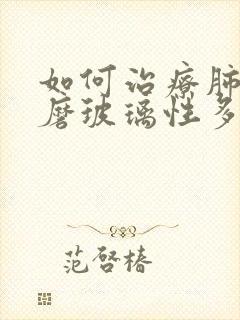 如何治疗肺
磨玻璃性多
范启椿